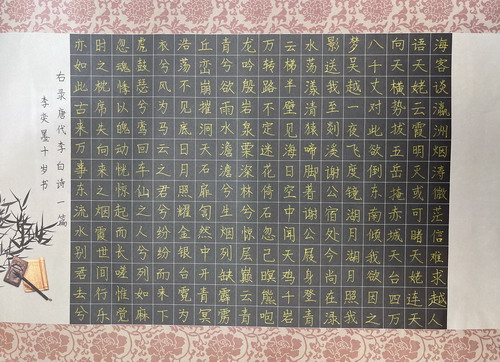 海客谈瀛洲烟涛微茫信难求越人
语天姥云霞明灭或可睹天姥连天
向天横势拔五岳掩赤城天台四万
八千丈对此欲倒东南倾我欲因之
梦吴越一夜飞度镜湖月湖月照我
影送我至剡溪谢公宿处今尚在渌
水荡漾清猿啼脚著谢公屐身登青
云梯半壁见海日空中闻天鸡千岩
万转路不定迷花倚石忽已暝熊咆
龙吟殷岩泉栗深林兮惊层巅云青
青兮欲雨水澹澹兮生烟列缺霹雳
丘峦崩摧洞天石扉訇然中开青冥
浩荡不见底日月照耀金银台霓为
衣兮风为马云之君兮纷纷而来下
虎鼓瑟兮鸾回车仙之人兮列如麻
忽魂悸以魄动恍惊起而长嗟惟觉
时之枕席失向来之烟霞世间行乐
亦如此古来万事东流水别君去兮
右录唐代李白诗一篇
李奕墨十岁书